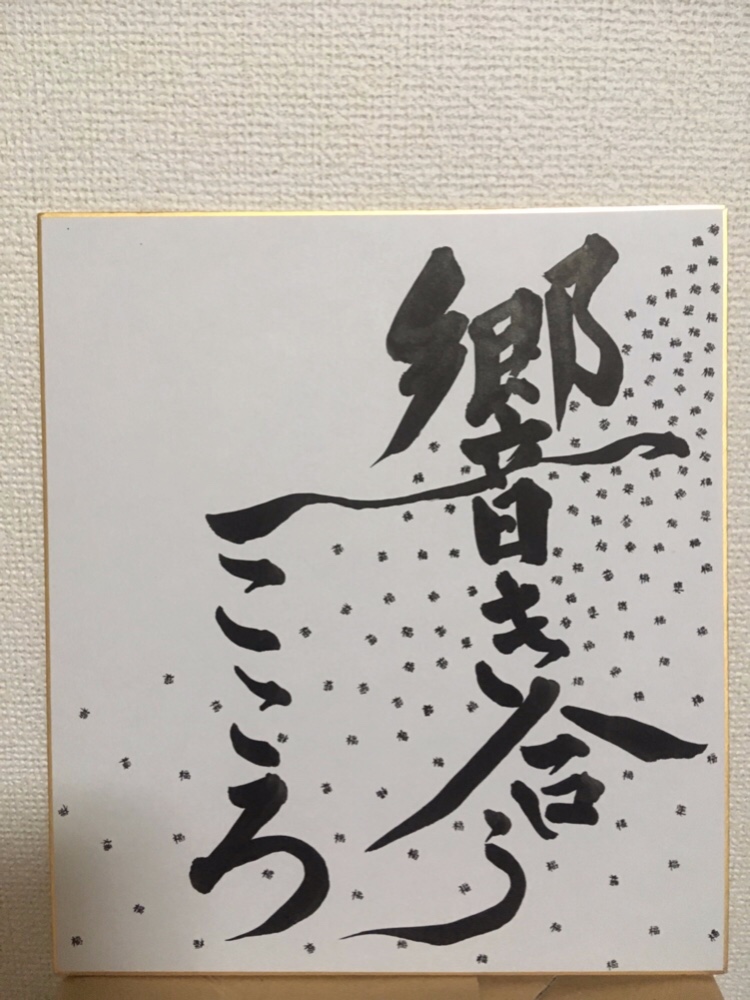 響き合う
こころ